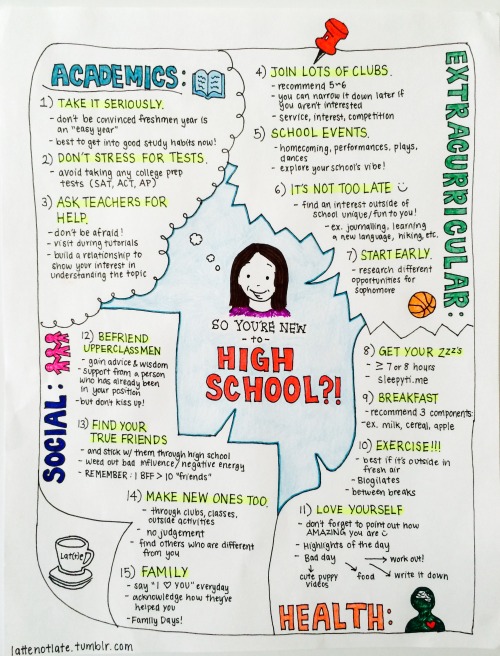 ACADEMICS:
1) TAKE IT SERIOUSLY.
- don't be convinced freshmen year is
an "easy year"
- best to get into good study habits now!
2) DON'T STRESS FOR TESTS.
- avoid taking any college prep
tests (SAT, ACT, AP)
3) ASK TEACHERS FOR
HELP.
- don't be afraid!
- visit during tutorials
- build a relationship to
show your interest in
understanding the topic
EXTRACURRICULAR:
4) JOIN LOTS OF CLUBS.
- recommend 5-6
- you can narrow it down later if
you aren't interested
- service, interest, competition
5) SCHOOL EVENTS.
- homecoming, performances, plays,
dances
- explore your school's vibe!
6) IT'S NOT TOO LATE
- find an interest outside of
school unique/fun to you!
- ex. journalling, learning
a new language, hiking, etc.
7) START EARLY.
- research different
opportunities for
sophomore
SO YOU'RE NEW
- to -
HIGH
SCHOOL?!
8) GET YOUR ZZZ's
- ≥ 7 or 8 hours
- sleepyti.me
9) BREAKFAST
- recommend 3 components:
- ex. milk, cereal, apple
10) EXERCISE!!!
- best if it's outside in
fresh air
- Blogilates
- between breaks
11) LOVE YOURSELF
- don't forget to point out how
AMAZING you are
- Highlights of the day
- Bad day → work out!
cute puppy
videos
food
write it down
HEALTH:
SOCIAL:
12) BEFRIEND
UPPERCLASSMEN
- gain advice & wisdom
- support from a person
who has already been
in your position
- but don't kiss up!
13) FIND YOUR
TRUE FRIENDS
- and stick w/ them through high school
- weed out bad influence/negative energy
- REMEMBER: 1 BFF > 10 "friends"
14) MAKE NEW ONES TOO.
- through clubs, classes,
outside activities
- no judgement
- find others who are different
from you
15) FAMILY
- say "I ♡ YOU" everyday
- acknowledge how they've
helped you
- Family Days!
lattenotlate.tumblr.com